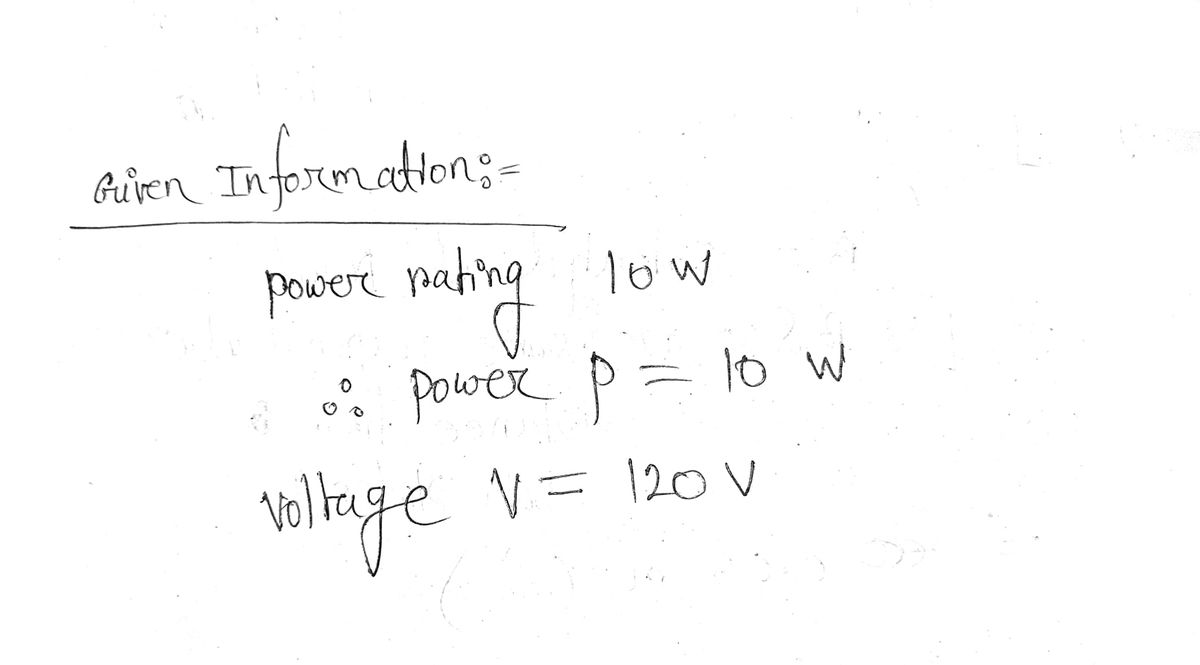 Given Information:=
power rating 10 W
∴ power P = 10 W
voltage V = 120 V